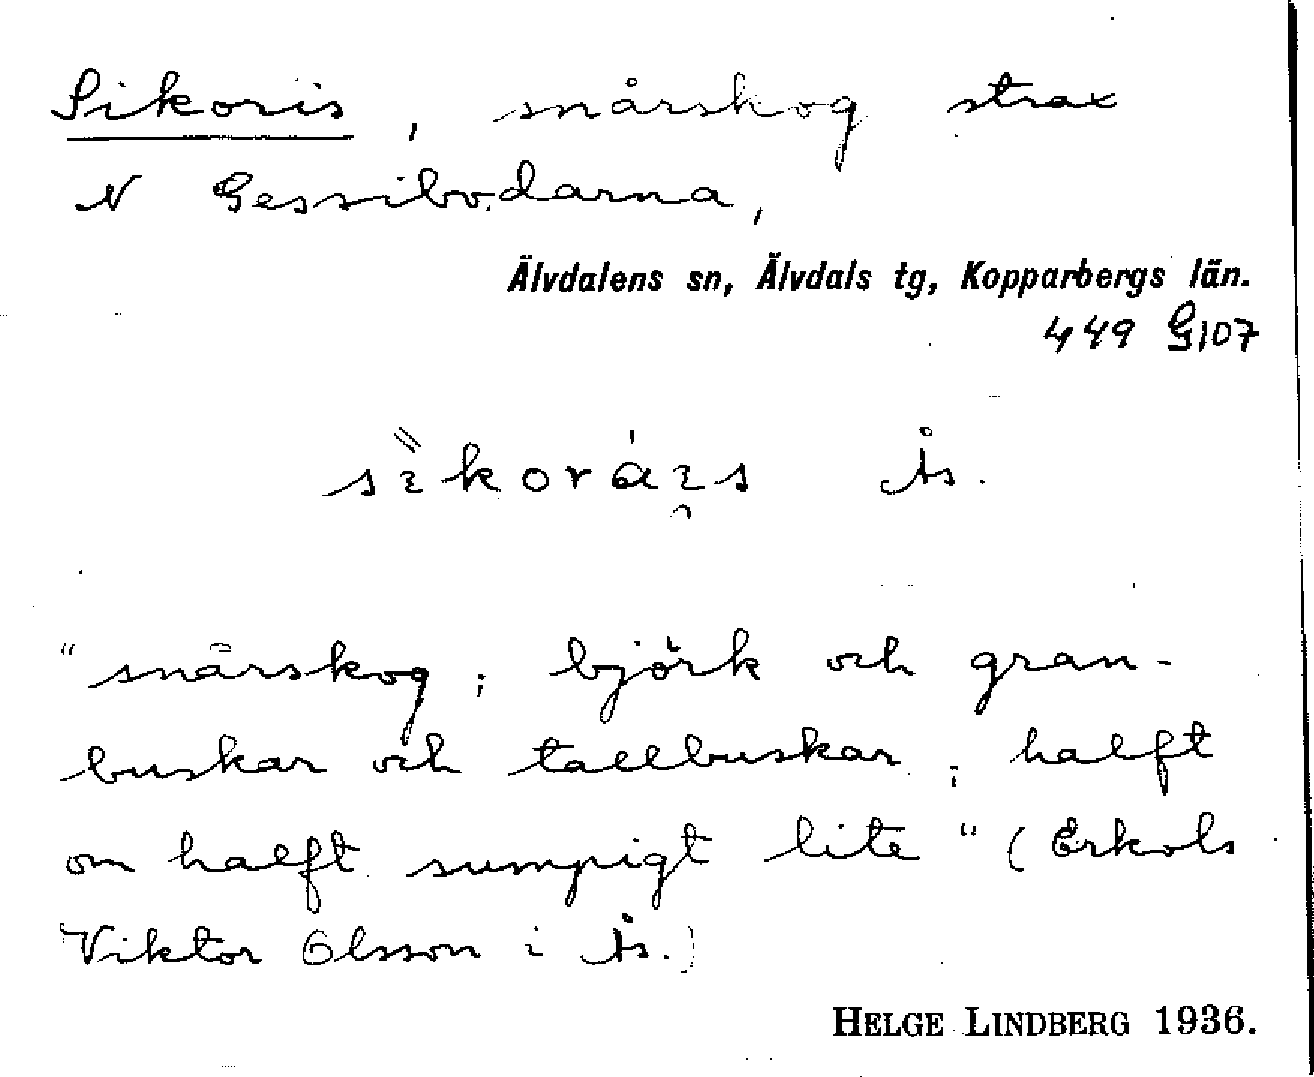 Sikoris, snårskog strax
N Gessibodarna,
Älvdalens sn, Älvdals tg, Kopparbergs län.
449 G107
sìkoráı̯s Ås.
"snårskog; björk och gran-
buskar och tallbuskar; halft
om halft sumpigt lite" (Erkols
Viktor Olsson i Ås.)
HELGE LINDBERG 1936.